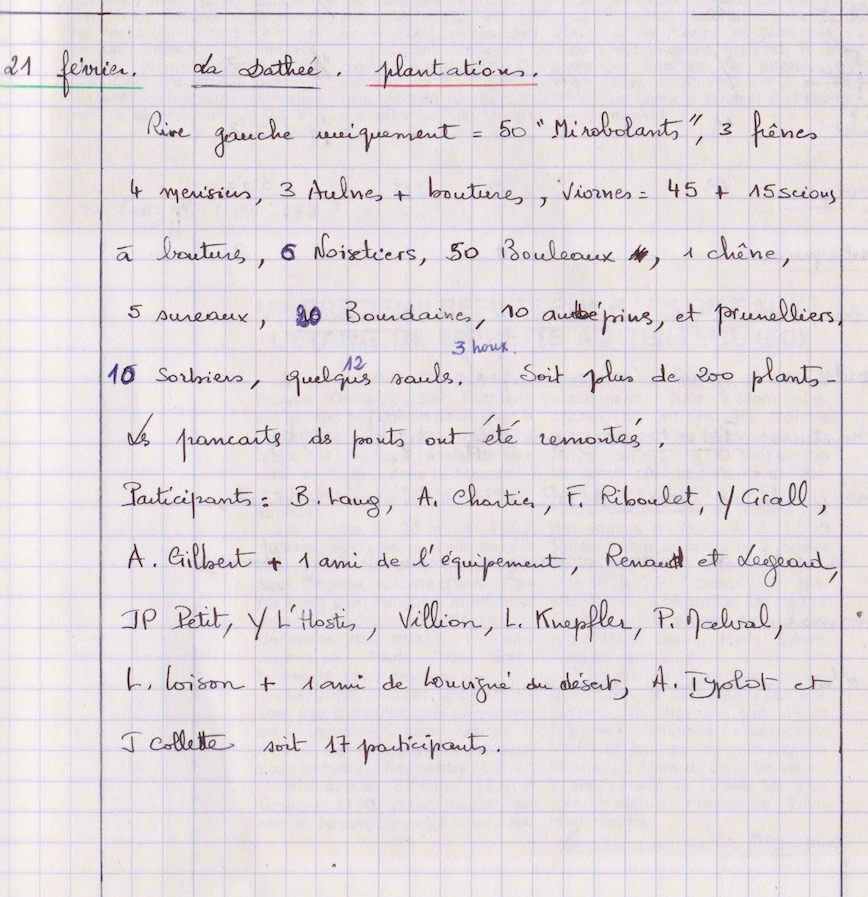 21 février. La Datheé. plantations.
Rive gauche uniquement = 50 "Mirobolants", 3 frênes
4 merisiers, 3 Aulnes + boutures, Viornes = 45 + 15 scions
à boutures, 6 Noisetiers, 50 Bouleaux, 1 chêne,
5 sureaux, 20 Bourdaines, 10 aubépins, et prunelliers,
12 3 houx.
10 Sorbiers, quelques sauls. Soit plus de 200 plants -
Les pancarts ds ponts ont été remontés.
Participants = B. Lang, A. Chartier, F. Riboulet, Y Grall,
A. Gilbert + 1 ami de l'équipement, Renault et Legeard,
JP Petit, Y L'Hostis, Villion, L. Knepfler, P. Malval,
L. Loison + 1 ami de Louvigné du désert, A. Typlot et
J Collette soit 17 participants.